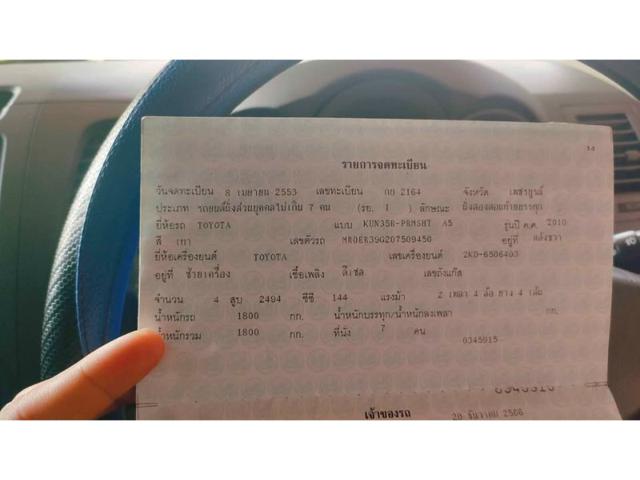 14
รายการจดทะเบียน
วันจดทะเบียน 8 เมษายน 2553 เลขทะเบียน กง 2164 จังหวัด เพชรบูรณ์
ประเภท รถยนต์นั่งส่วนบุคคลไม่เกิน 7 คน (รย. 1 ) ลักษณะ นั่งสองตอนท้ายบรรทุก
ยี่ห้อรถ TOYOTA แบบ KUN35R-PRMSHT A5 รุ่นปี ค.ศ. 2010
สี เทา เลขตัวรถ MR0ER39G207509450 อยู่ที่ หลังขวา
ยี่ห้อเครื่องยนต์ TOYOTA เลขเครื่องยนต์ 2KD-6506403
อยู่ที่ ซ้ายเครื่อง เชื้อเพลิง ดีเซล เลขถังแก๊ส
จำนวน 4 สูบ 2494 ซีซี 144 แรงม้า 2 เพลา 4 ล้อ ยาง 4 เส้น
น้ำหนักรถ 1800 กก. น้ำหนักบรรทุก/น้ำหนักลงเพลา กก.
น้ำหนักรวม 1800 กก. ที่นั่ง 7 คน
0345915
เจ้าของรถ
20 ธันวาคม 2566